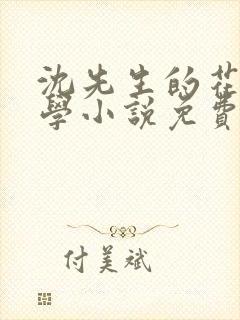 沈先生的花
學小說免費
付美斌